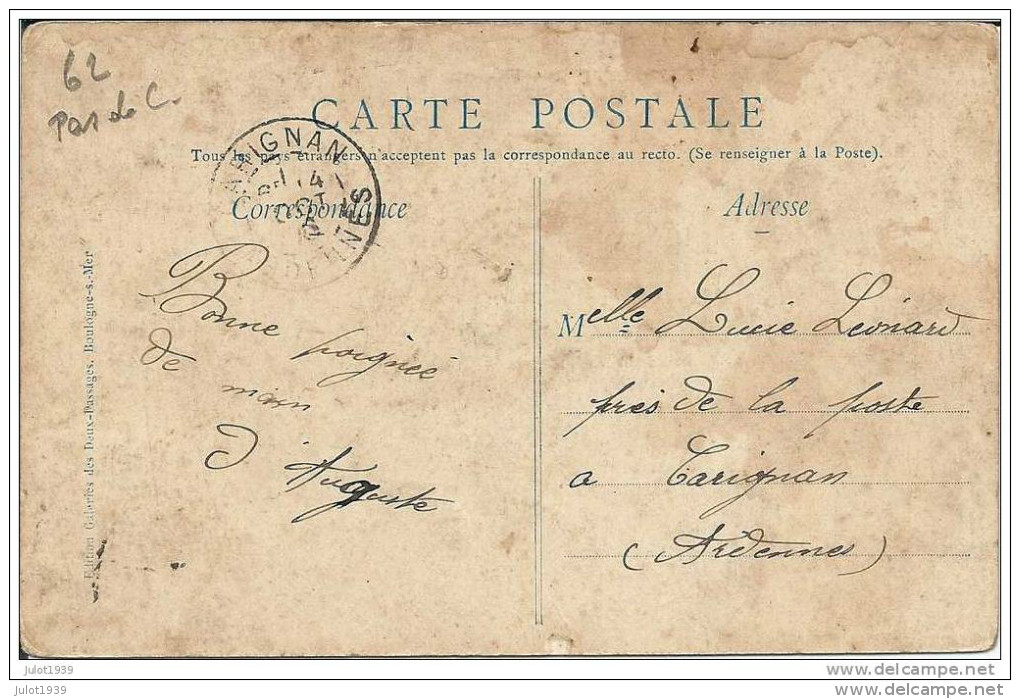 62
Pas de C.
CARTE POSTALE
Tous les pays étrangers n'acceptent pas la correspondance au recto. (Se renseigner à la Poste).
ARIGNAN
14
OCT
Correspondance
Adresse
Bonne poignée
de main
d'Auguste
Melle Lucie Léonard
près de la poste
a Carignan
(Ardennes)
Edition Galeries des Deux-Passages. Boulogne-s.-Mer
julot1939
julot1939
www.delcampe.net
www.delcampe.net